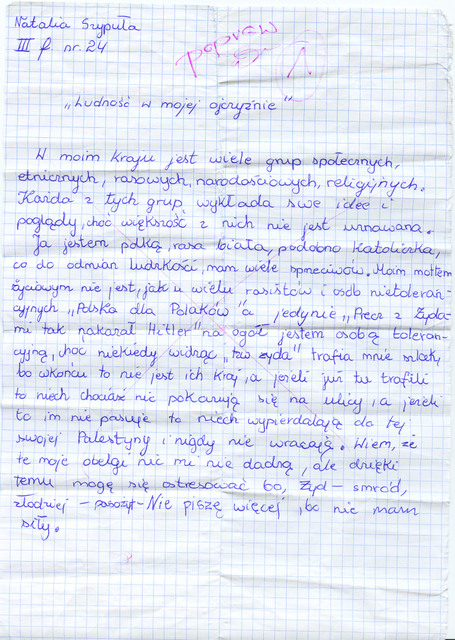 Natalia Szypuła
III f nr. 24
popraw
"Ludność w mojej ojczyźnie"
W moim kraju jest wiele grup społecznych,
etnicznych, rasowych, narodościowych, religijnych.
Każda z tych grup wykłada swe idee i
poglądy, choć większość z nich nie jest uznawana.
Ja jestem polką, rasa biała, podobno katoliczka,
co do odmian ludzkości, mam wiele sprzeciwów. Moim mottem
życiowym nie jest, jak u wielu rasistów i osób nietoleran-
cyjnych "Polska dla Polaków" a jedynie "Precz z Żyda-
mi tak nakazał Hitler" na ogół jestem osobą toleran-
cyjną, choć niekiedy widząc "tzw żyda" trafia mnie szlak,
bo wkońcu to nie jest ich kraj, a jeżeli już tu trafili
to niech chociaż nie pokazują się na ulicy, a jeżeli
to im nie pasuje to niech wypierdalają do tej
swojej Palestyny i nigdy nie wracają. Wiem, że
te moje obelgi nic mi nie dadzą, ale dzięki
temu mogę się ostresować bo, żyd – smród,
złodziej – pasożyt – Nie piszę więcej, bo nie mam
siły.